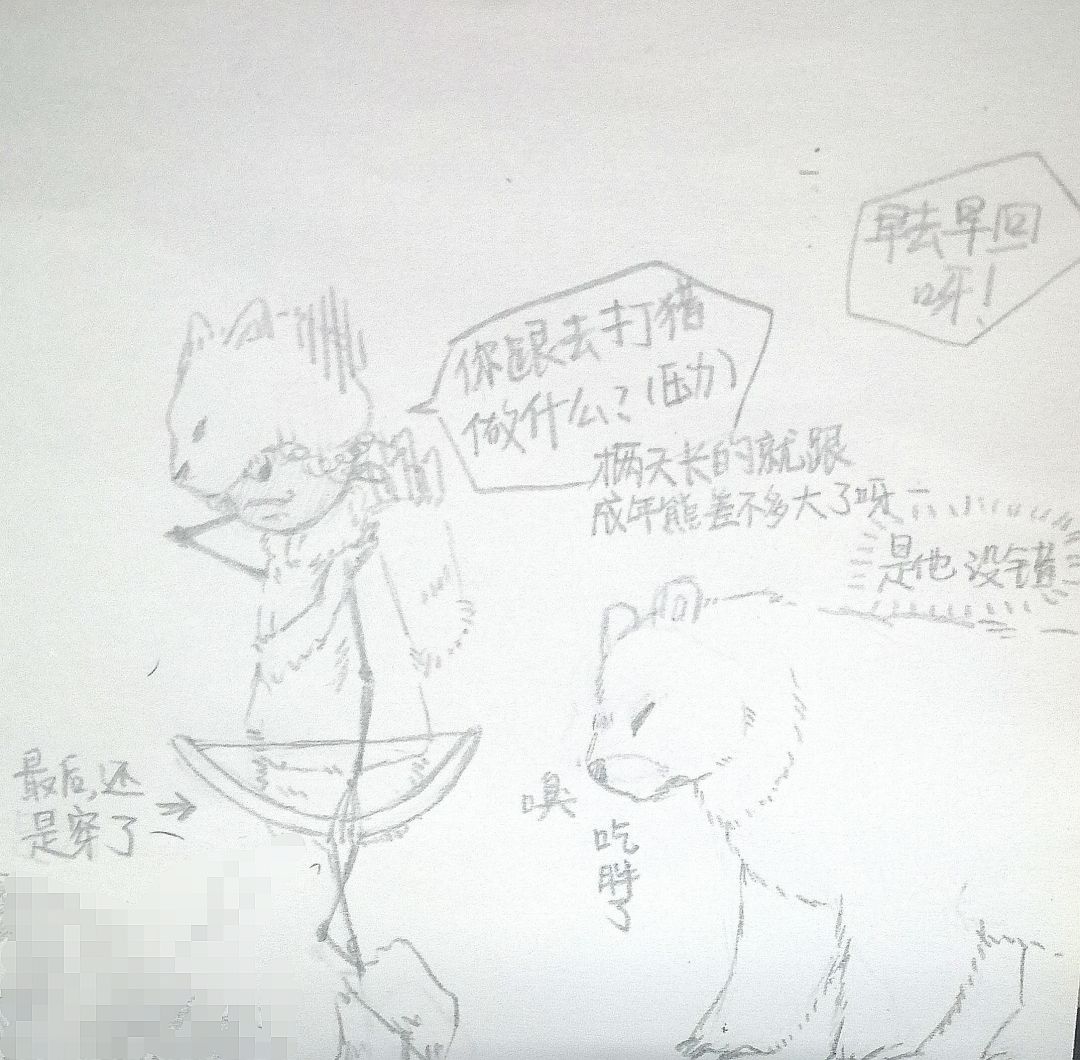 早去早回
呀！
你跟去打猎
做什么？（压力）
才两天长的就跟
成年熊差不多大了呀
是他没错
最后，还
是穿了
嗅
吃
胖
了